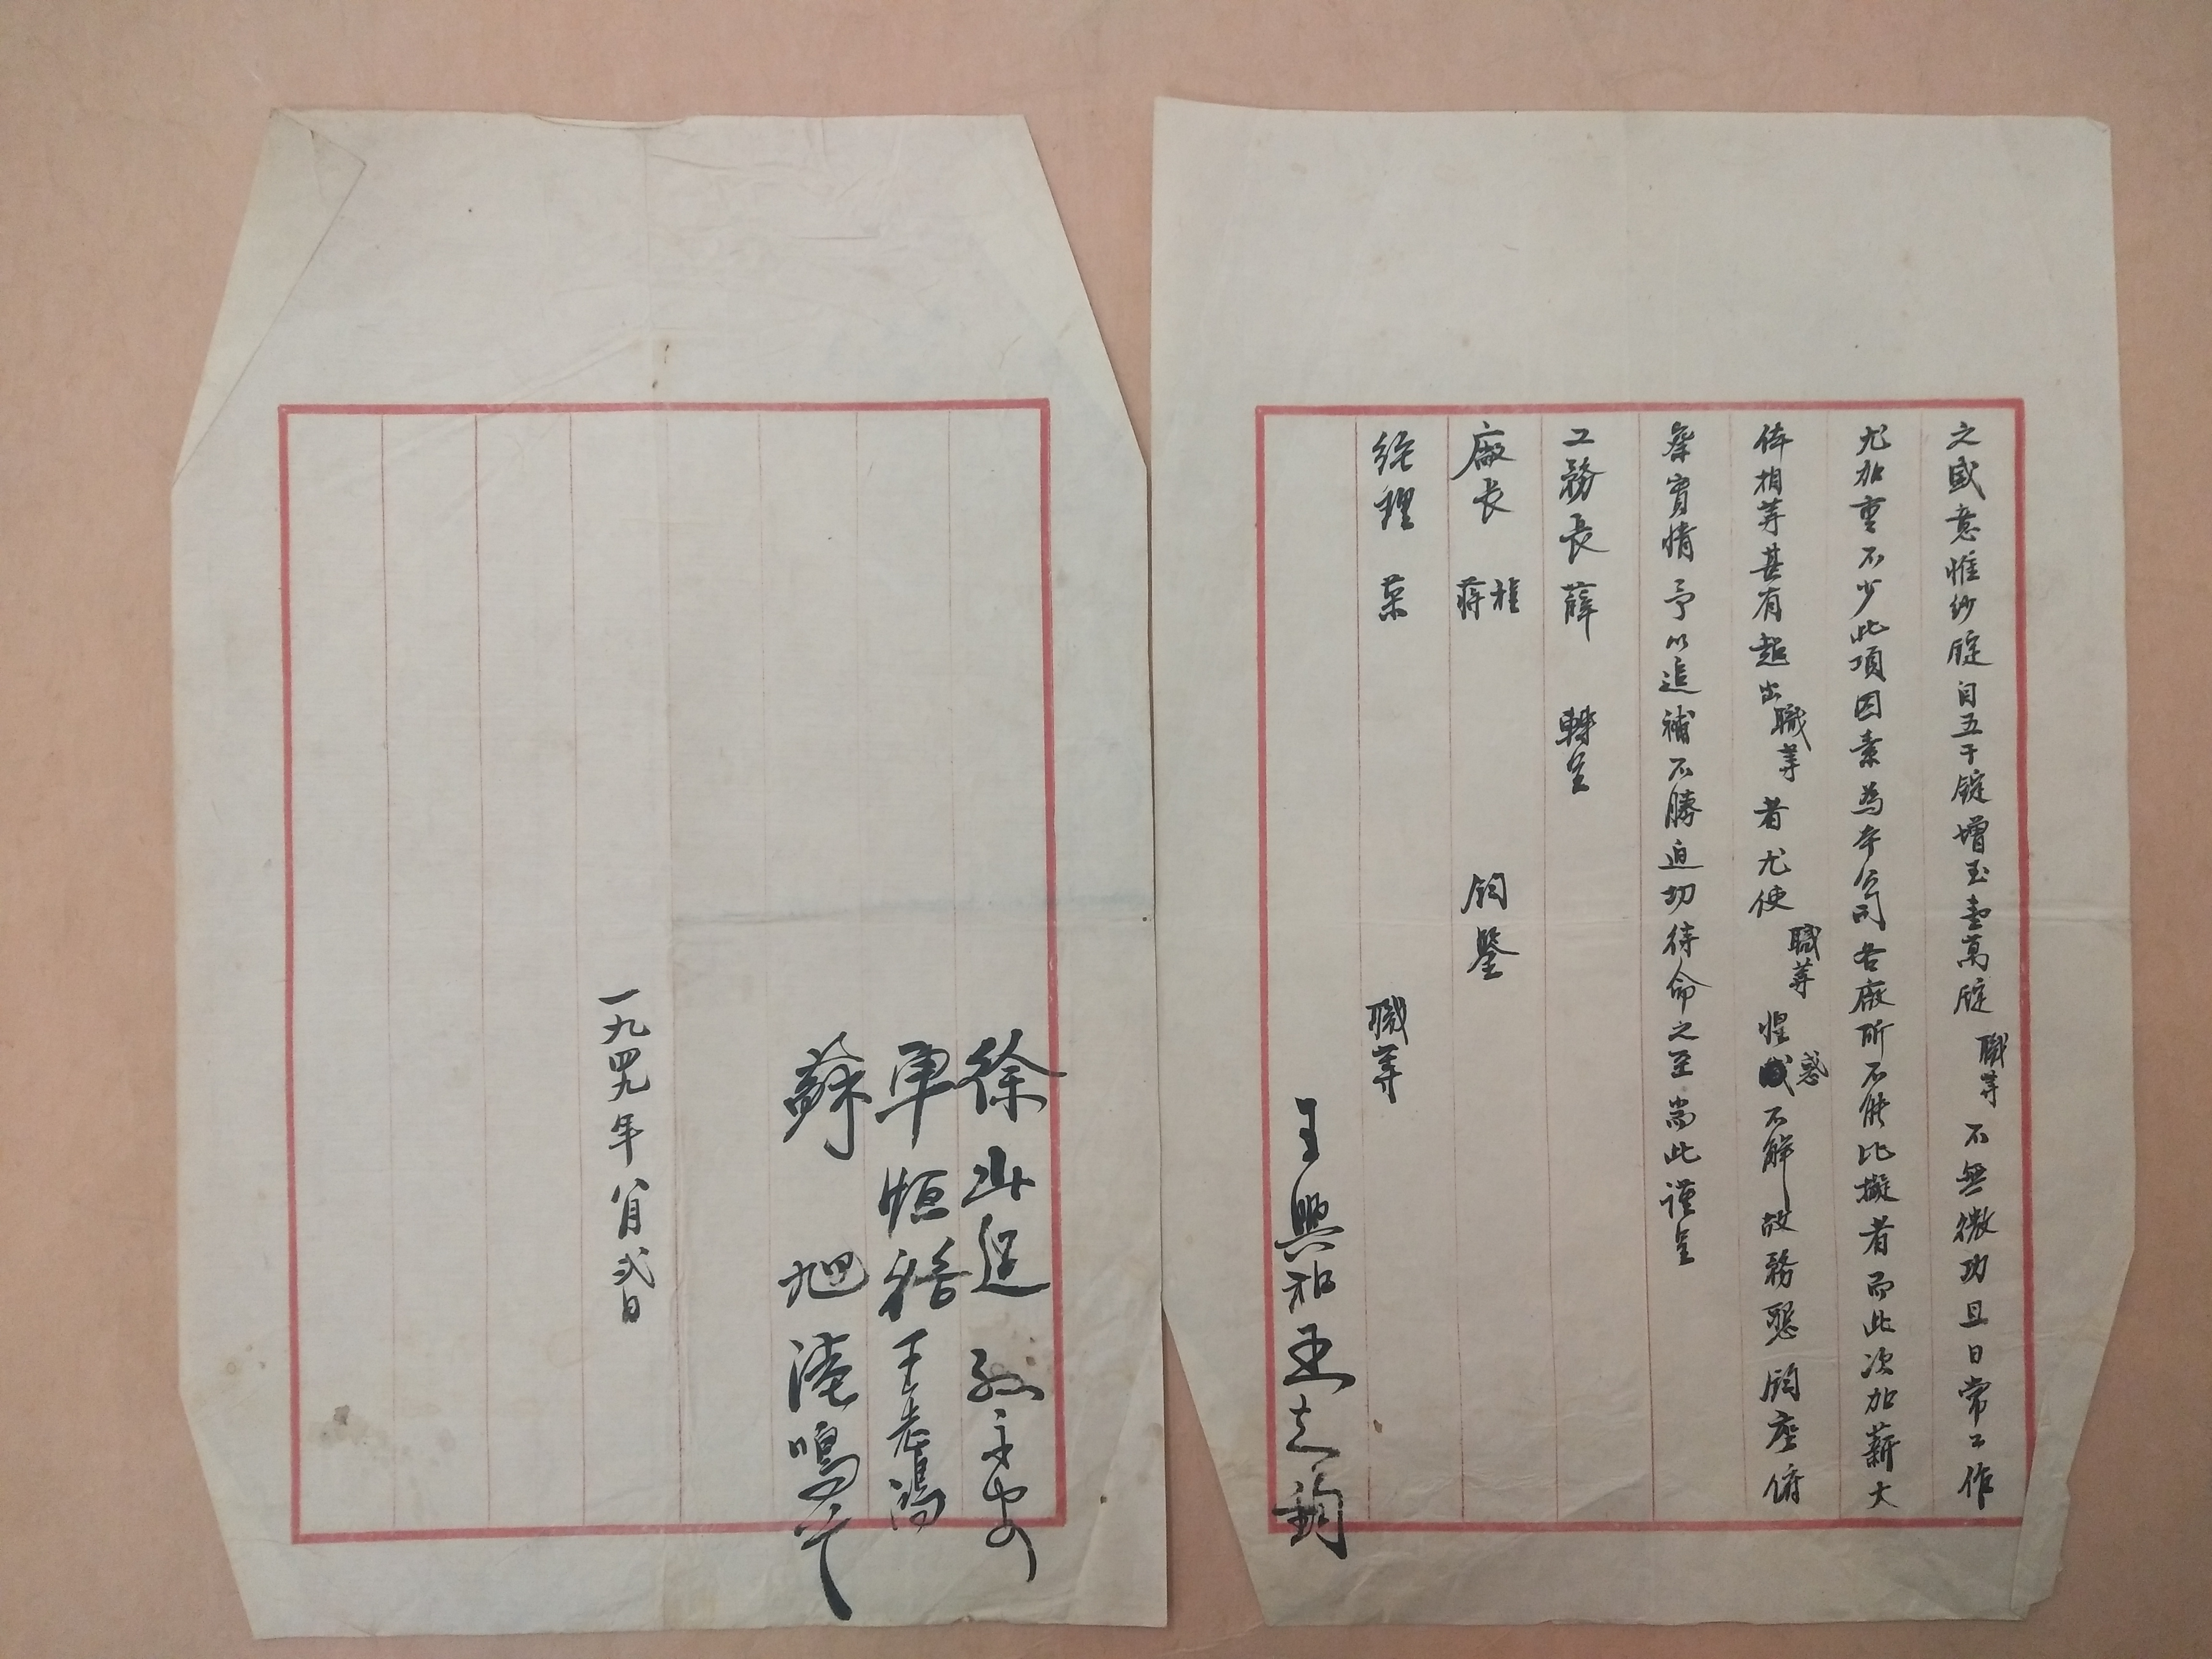 之盛意惟紗錠自五千錠增至壹萬錠職等不無微功且日常工作
尤加重不少此項因素為本公司各廠所不能比擬者而此次加薪大
伴相等甚有超出職等者尤使職等惶惑不解故務懇鈞座俯
察實情予以追補不勝迫切待命之至耑此謹呈
工務長薛 轉呈
廠長 蔣 鈞鑒
經理 榮
職等
王興和
徐
車恒
王志鴻
蘇 旭
鳴
一九四九年八月弍日